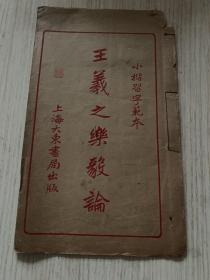 小楷習字範本
王羲之樂毅論
上海大東書局出版